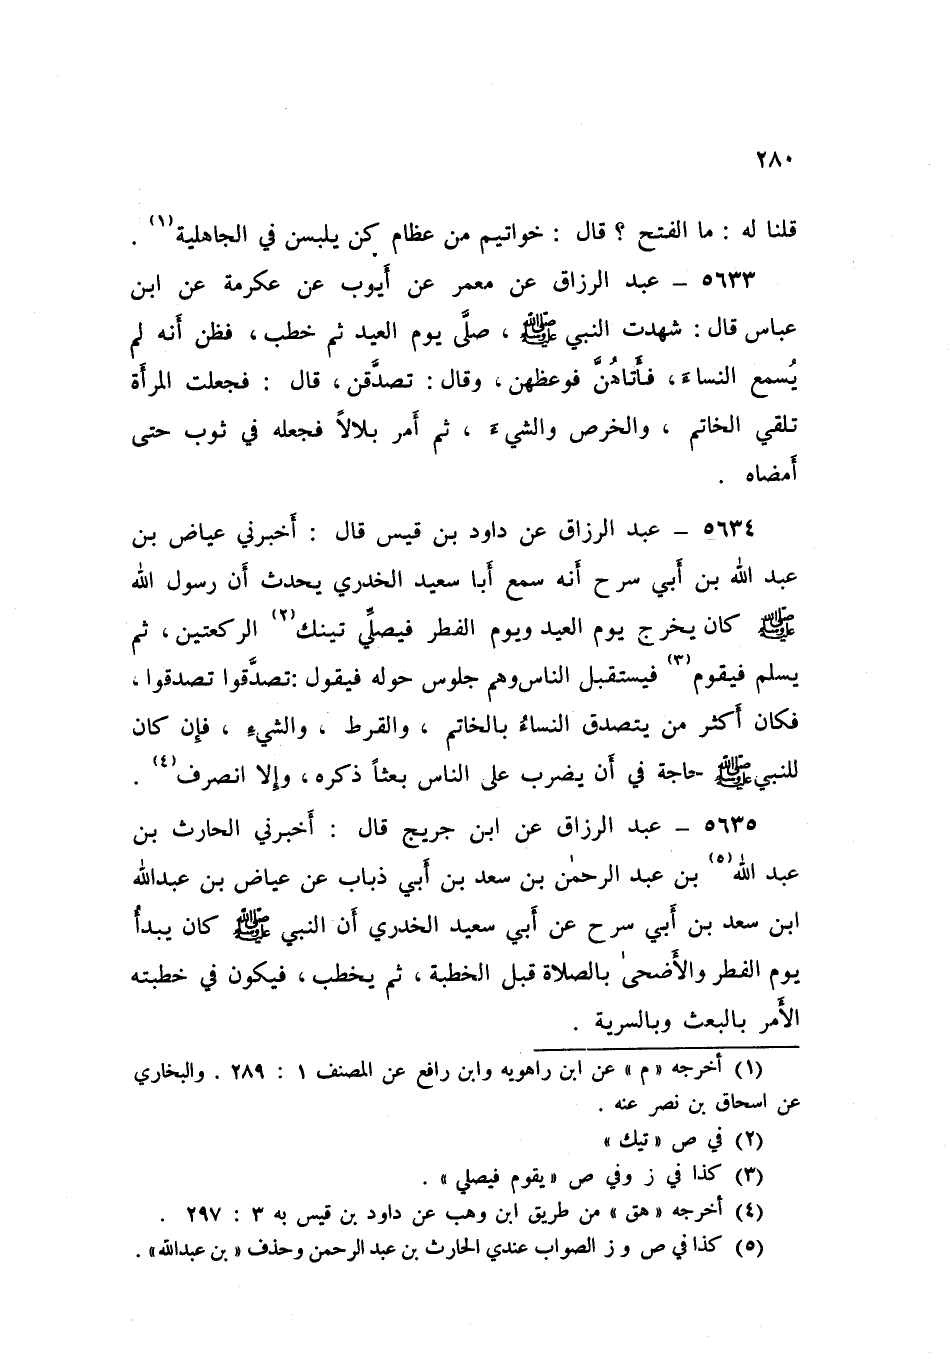 ٢٨٠
قلنا له : ما الفتح ؟ قال : خواتيم من عظام كن يلبسن في الجاهلية(١) .
٥٦٣٣ – عبد الرزاق عن معمر عن أَيوب عن عكرمة عن ابن
عباس قال : شهدت النبي ﷺ ، صلَّى يوم العيد ثم خطب ، فظن أَنه لم
يُسمع النساءَ ، فأَتاهُنَّ فوعظهن ، وقال : تصدَّقن ، قال : فجعلت المرأَة
تلقي الخاتم ، والخرص والشيءَ ، ثم أَمر بلالاً فجعله في ثوب حتى
أَمضاه .
٥٦٣٤ – عبد الرزاق عن داود بن قيس قال : أَخبرني عياض بن
عبد الله بن أَبي سرح أَنه سمع أَبا سعيد الخدري يحدث أَن رسول الله
ﷺ كان يخرج يوم العيد ويوم الفطر فيصلِّي تينك(٢) الركعتين ، ثم
يسلم فيقوم(٣) فيستقبل الناس وهم جلوس حوله فيقول : تصدَّقوا تصدقوا ،
فكان أَكثر من يتصدق النساءُ بالخاتم ، والقرط ، والشيءِ ، فإِن كان
للنبي ﷺ حاجة في أَن يضرب على الناس بعثاً ذكره ، وإِلا انصرف(٤) .
٥٦٣٥ – عبد الرزاق عن ابن جريج قال : أَخبرني الحارث بن
عبد الله(٥) بن عبد الرحمٰن بن سعد بن أَبي ذباب عن عياض بن عبدالله
ابن سعد بن أَبي سرح عن أَبي سعيد الخدري أَن النبي ﷺ كان يبدأُ
يوم الفطر والأَضحىٰ بالصلاة قبل الخطبة ، ثم يخطب ، فيكون في خطبته
الأَمر بالبعث وبالسرية .
(١) أخرجه «م» عن ابن راهويه وابن رافع عن المصنف ١ : ٢٨٩ . والبخاري
عن اسحاق بن نصر عنه .
(٢) في ص «تيك»
(٣) كذا في ز وفي ص «يقوم فيصلي» .
(٤) أخرجه «هق» من طريق ابن وهب عن داود بن قيس به ٣ : ٢٩٧ .
(٥) كذا في ص و ز الصواب عندي الحارث بن عبد الرحمن وحذف «بن عبدالله» .